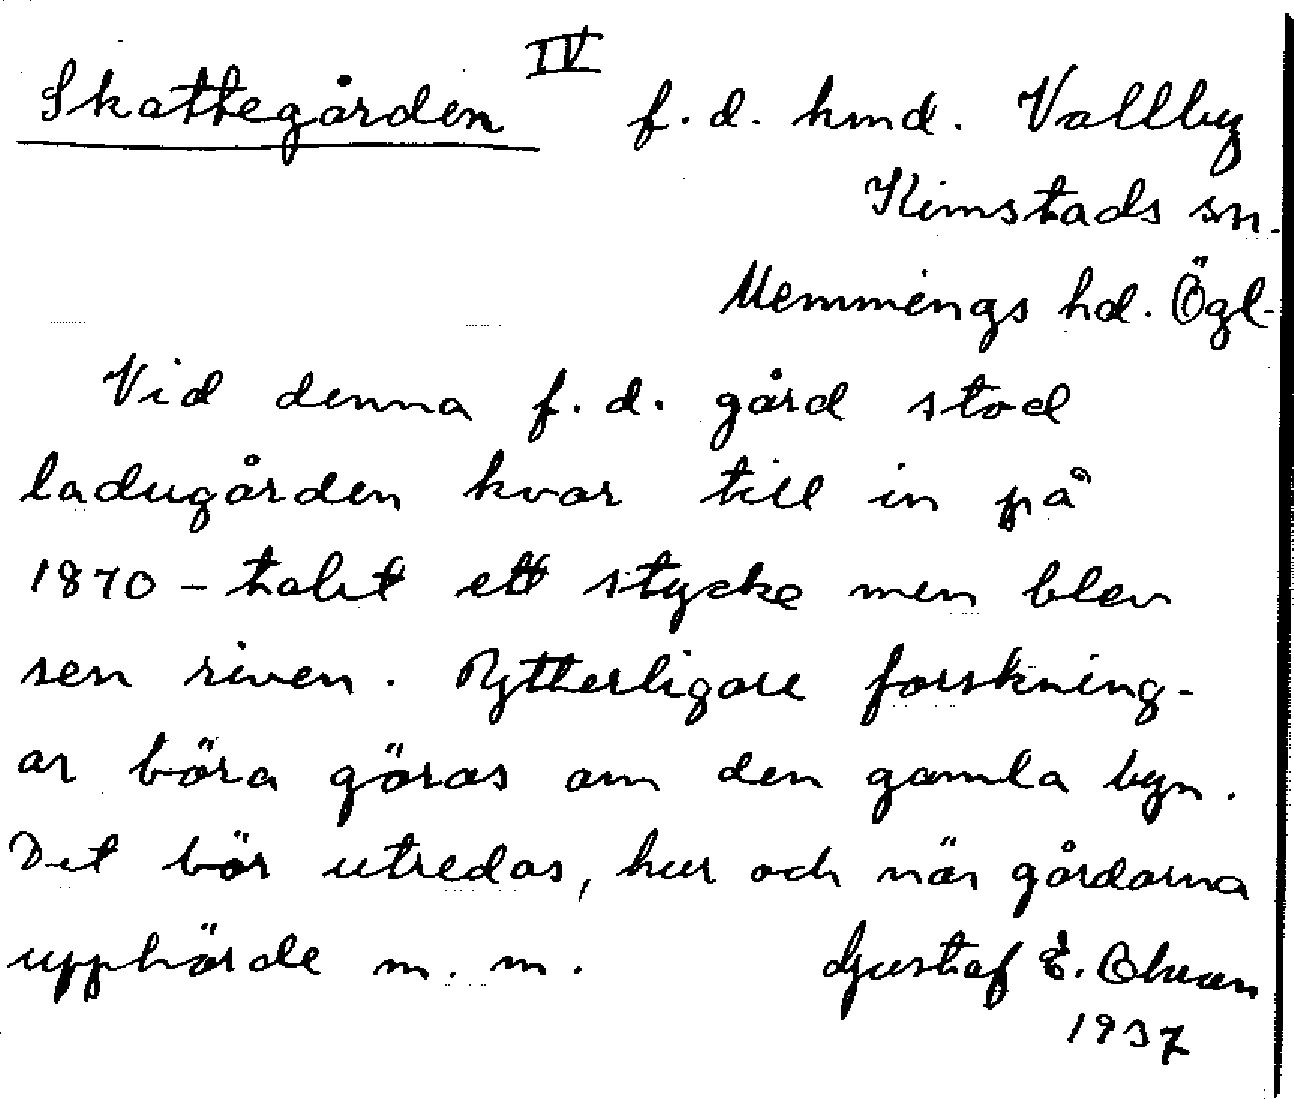 IV
Skattegården f.d. hmd. Vallby
Kimstads sn.
Memmings hd. Ögl.
Vid denna f.d. gård stod
ladugården kvar till in på
1870-talet ett stycke men blev
sen riven. Ytterligare forskning-
ar böra göras om den gamla byn.
Det bör utredas, hur och när gårdarna
upphörde m.m. Gustaf E.
1937